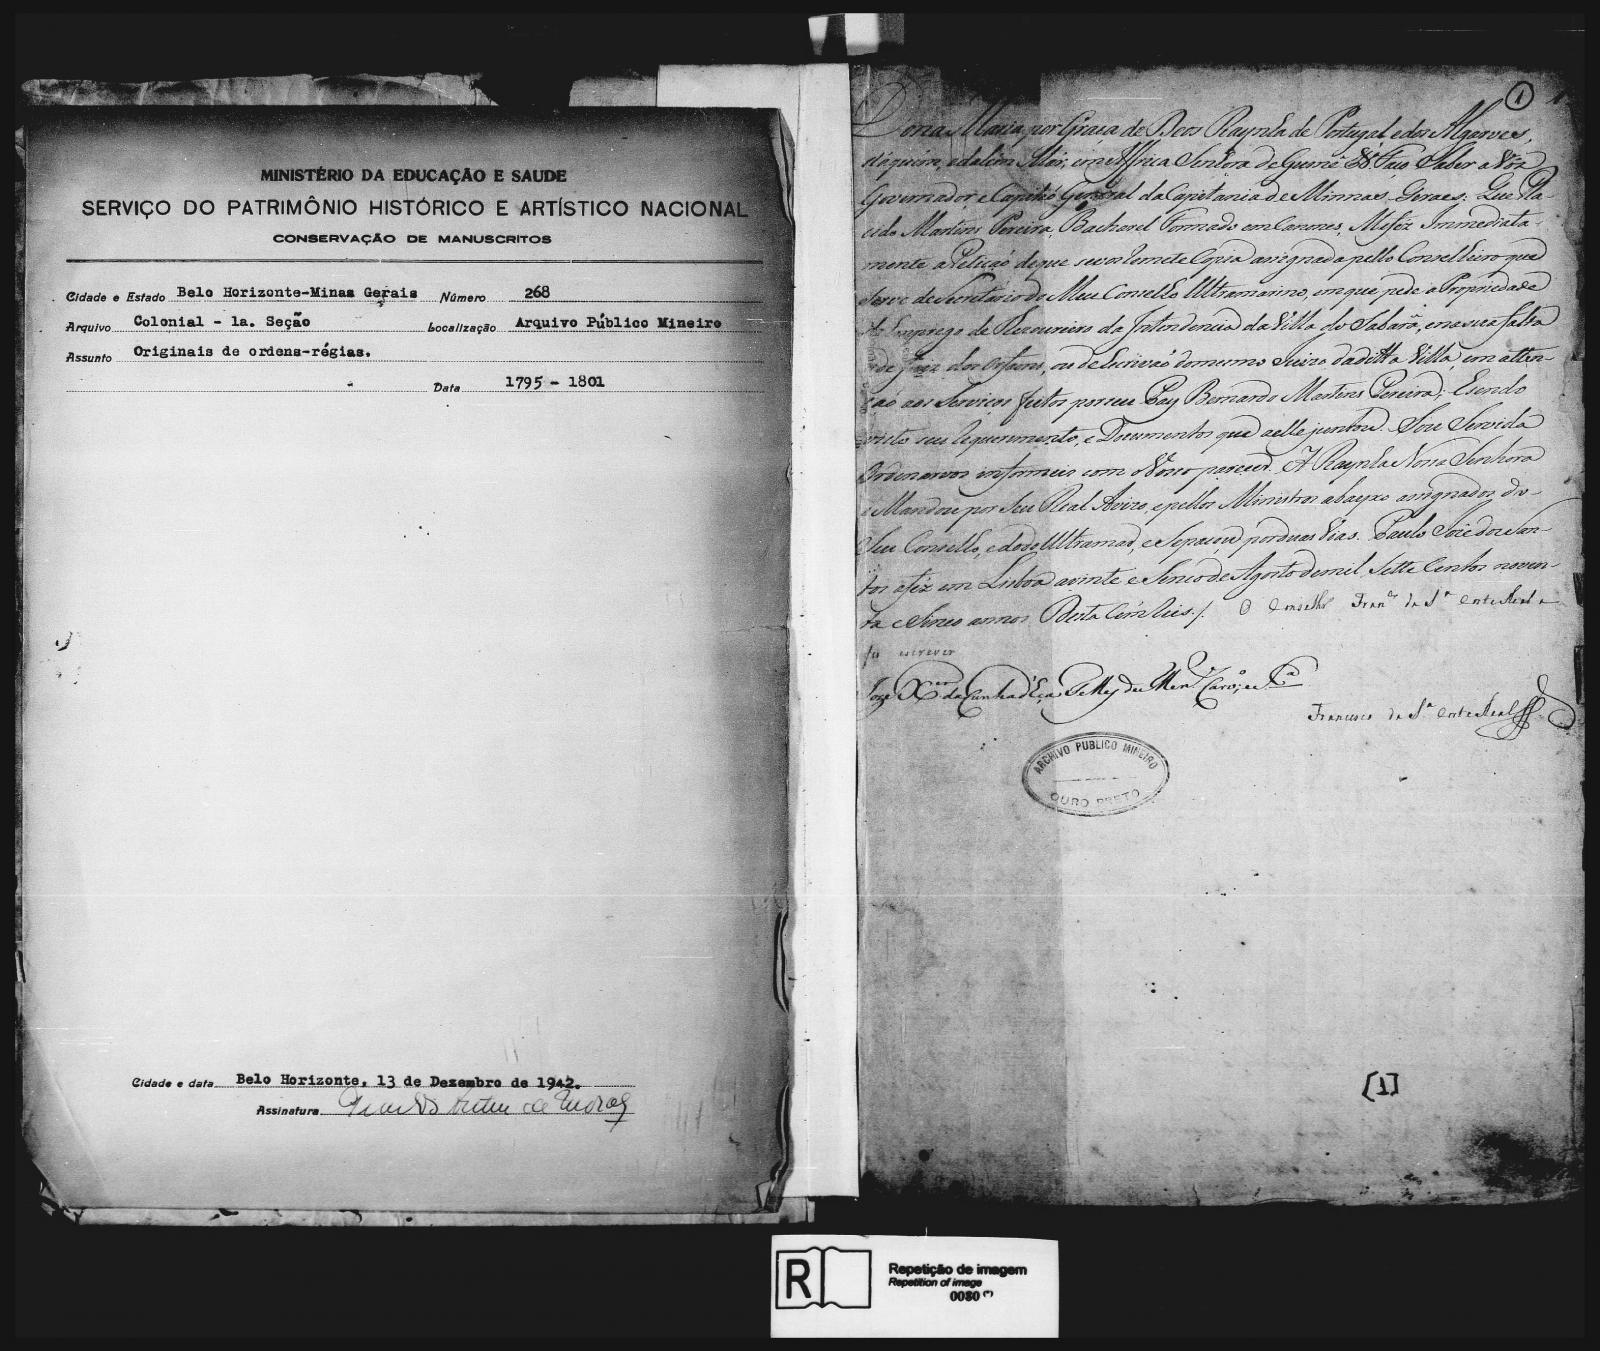 MINISTÉRIO DA EDUCAÇÃO E SAUDE
SERVIÇO DO PATRIMÔNIO HISTÓRICO E ARTÍSTICO NACIONAL
CONSERVAÇÃO DE MANUSCRITOS
Cidade e Estado Belo Horizonte-Minas Gerais Número 268
Arquivo Colonial - 1a. Seção Localização Arquivo Público Mineiro
Assunto Originais de ordens-régias.
Data 1795 - 1801
Cidade e data Belo Horizonte, 13 de Dezembro de 1942.
Assinatura
1
Dona Maria por Graça de Deos Raynha de Portugal, e dos Algarves,
daquem, e dalem Mar, em Affrica Senhora de Guiné &ª. Faço Saber a Vós
Governador e Capitão General da Capitania de Minnas Geraes: Que Pla-
cido Martins Pereira, Bacharel Formado em Canones, Me fez immediata-
mente a Petição de que se vos remete Copia asignada pello Conselheiro que
serve de Secretario do Meu Conselho Ultramarino, em que pede a Propriedade
do Emprego de Thezoureiro da Intendencia da Villa do Sabará, e na sua falta
de Juiz dos Orfaons, ou de Escrivaõ do mesmo Juizo da ditta Villa, em atten-
çaõ aos Serviços feitos por seu Pay Bernardo Martins Pereira; E sendo
visto seu requerimento, e Documentos que a elle juntou. Sou Servida
Ordenarvos informeis com o Vosso parecer. A Raynha Nossa Senhora
o Mandou por Seu Real Avizo, e pellos Ministros abayxo asignados, do
Seu Conselho, e do do Ultramar, e Se passou por duas Vias. Paulo Jozé dos San-
tos a fêz em Lisboa a vinte e Sinco de Agosto de mil Sette Centos noven-
ta e Sinco annos. Desta Cem Reis./. O Conselhrº Franco da Sª Corte Real a
fes escrever
Joze Xer da Cunha d'Eça Telles de Menes Carvº e Sª
Francisco da Sª Corte Real
ARCHIVO PUBLICO MINEIRO
OURO PRETO
[1]
R
Repetição de imagem
Repetition of image
0080 (*)